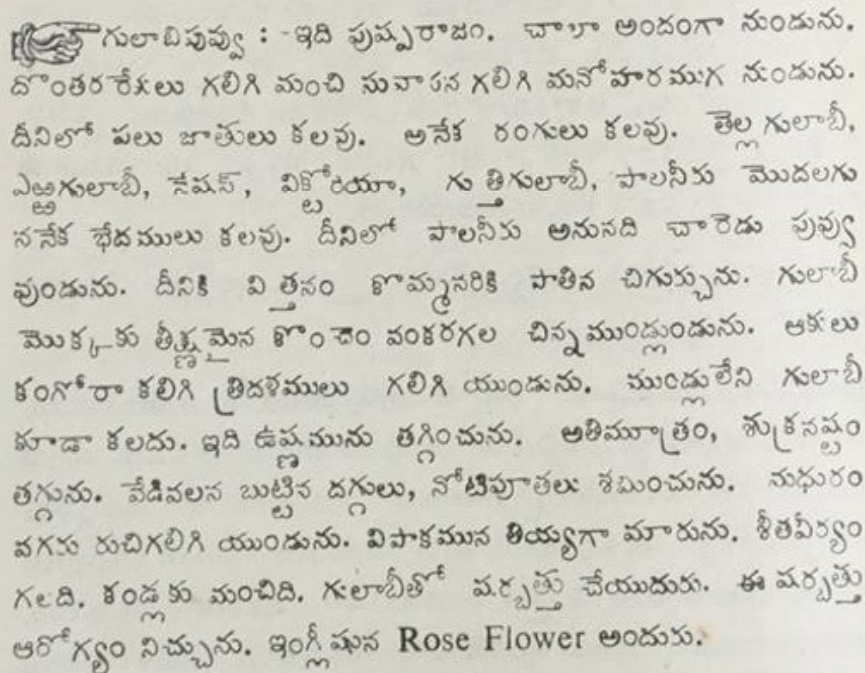 గులాబిపువ్వు : -ఇది పుష్పరాజం. చాలా అందంగా నుండును.
దొంతరరేకులు గలిగి మంచి సువాసన గలిగి మనోహరముగ నుండును.
దీనిలో పలు జాతులు కలవు. అనేక రంగులు కలవు. తెల్ల గులాబీ,
ఎఱ్ఱగులాబీ, నేషనే, విక్టోరియా, గుత్తిగులాబీ, పాలనీరు మొదలగు
ననేక భేదములు కలవు. దీనిలో పాలనీరు అనునది చారెడు పువ్వు
వుండును. దీనికి విత్తనం కొమ్మనరికి పాతిన చిగుర్చును. గులాబీ
మొక్కకు తీక్ష్ణమైన కొంచెం వంకరగల చిన్నముండ్లుండును. ఆకులు
కంగోరా కలిగి త్రిదళములు గలిగి యుండును. ముండ్లులేని గులాబీ
కూడా కలదు. ఇది ఉష్ణమును తగ్గించును. అతిమూత్రం, శుక్రనష్టం
తగ్గును. వేడివలన బుట్టిన దగ్గులు, నోటిపూతలు శమించును. మధురం
వగరు రుచిగలిగి యుండును. విపాకమున తియ్యగా మారును. శీతవీర్యం
గలది. కండ్లకు మంచిది. గులాబీతో షర్బత్తు చేయుదురు. ఈ షర్బత్తు
ఆరోగ్యం నిచ్చును. ఇంగ్లీషున Rose Flower అందురు.